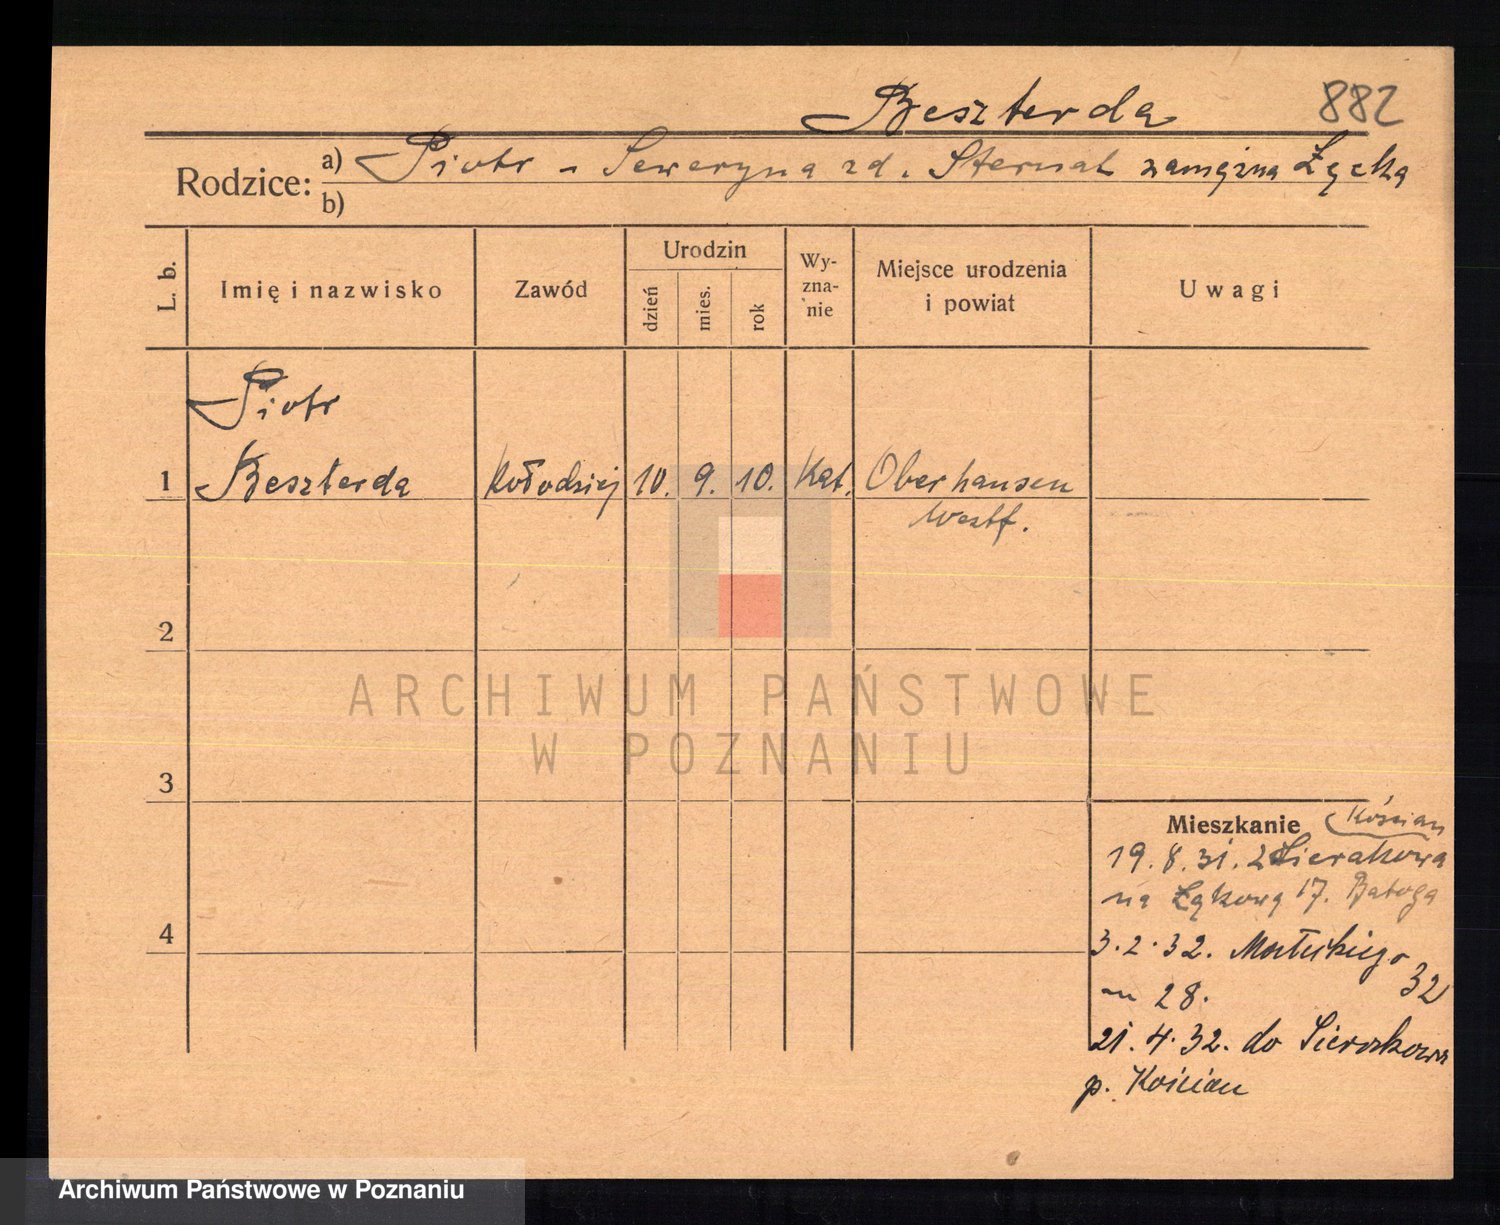 Beszterda 882
Rodzice: a) Piotr - Seweryna zd. Sternal zamężna Łącka
b)
L. b. Imię i nazwisko Zawód Urodzin dzień mies. rok Wy-zna-nie Miejsce urodzenia i powiat Uwagi
Piotr
1 Beszterda Kołodziej 10. 9. 10. Kat. Oberhausen
Westf.
2
ARCHIWUM PAŃSTWOWE
W POZNANIU
3
Mieszkanie Kościan
19.8.31. z Sierakowa
na Łąkową 17. Batoga
4
3.2.32.
32
m 28.
21.4.32. do Sierakowa
p. Kościan
Archiwum Państwowe w Poznaniu